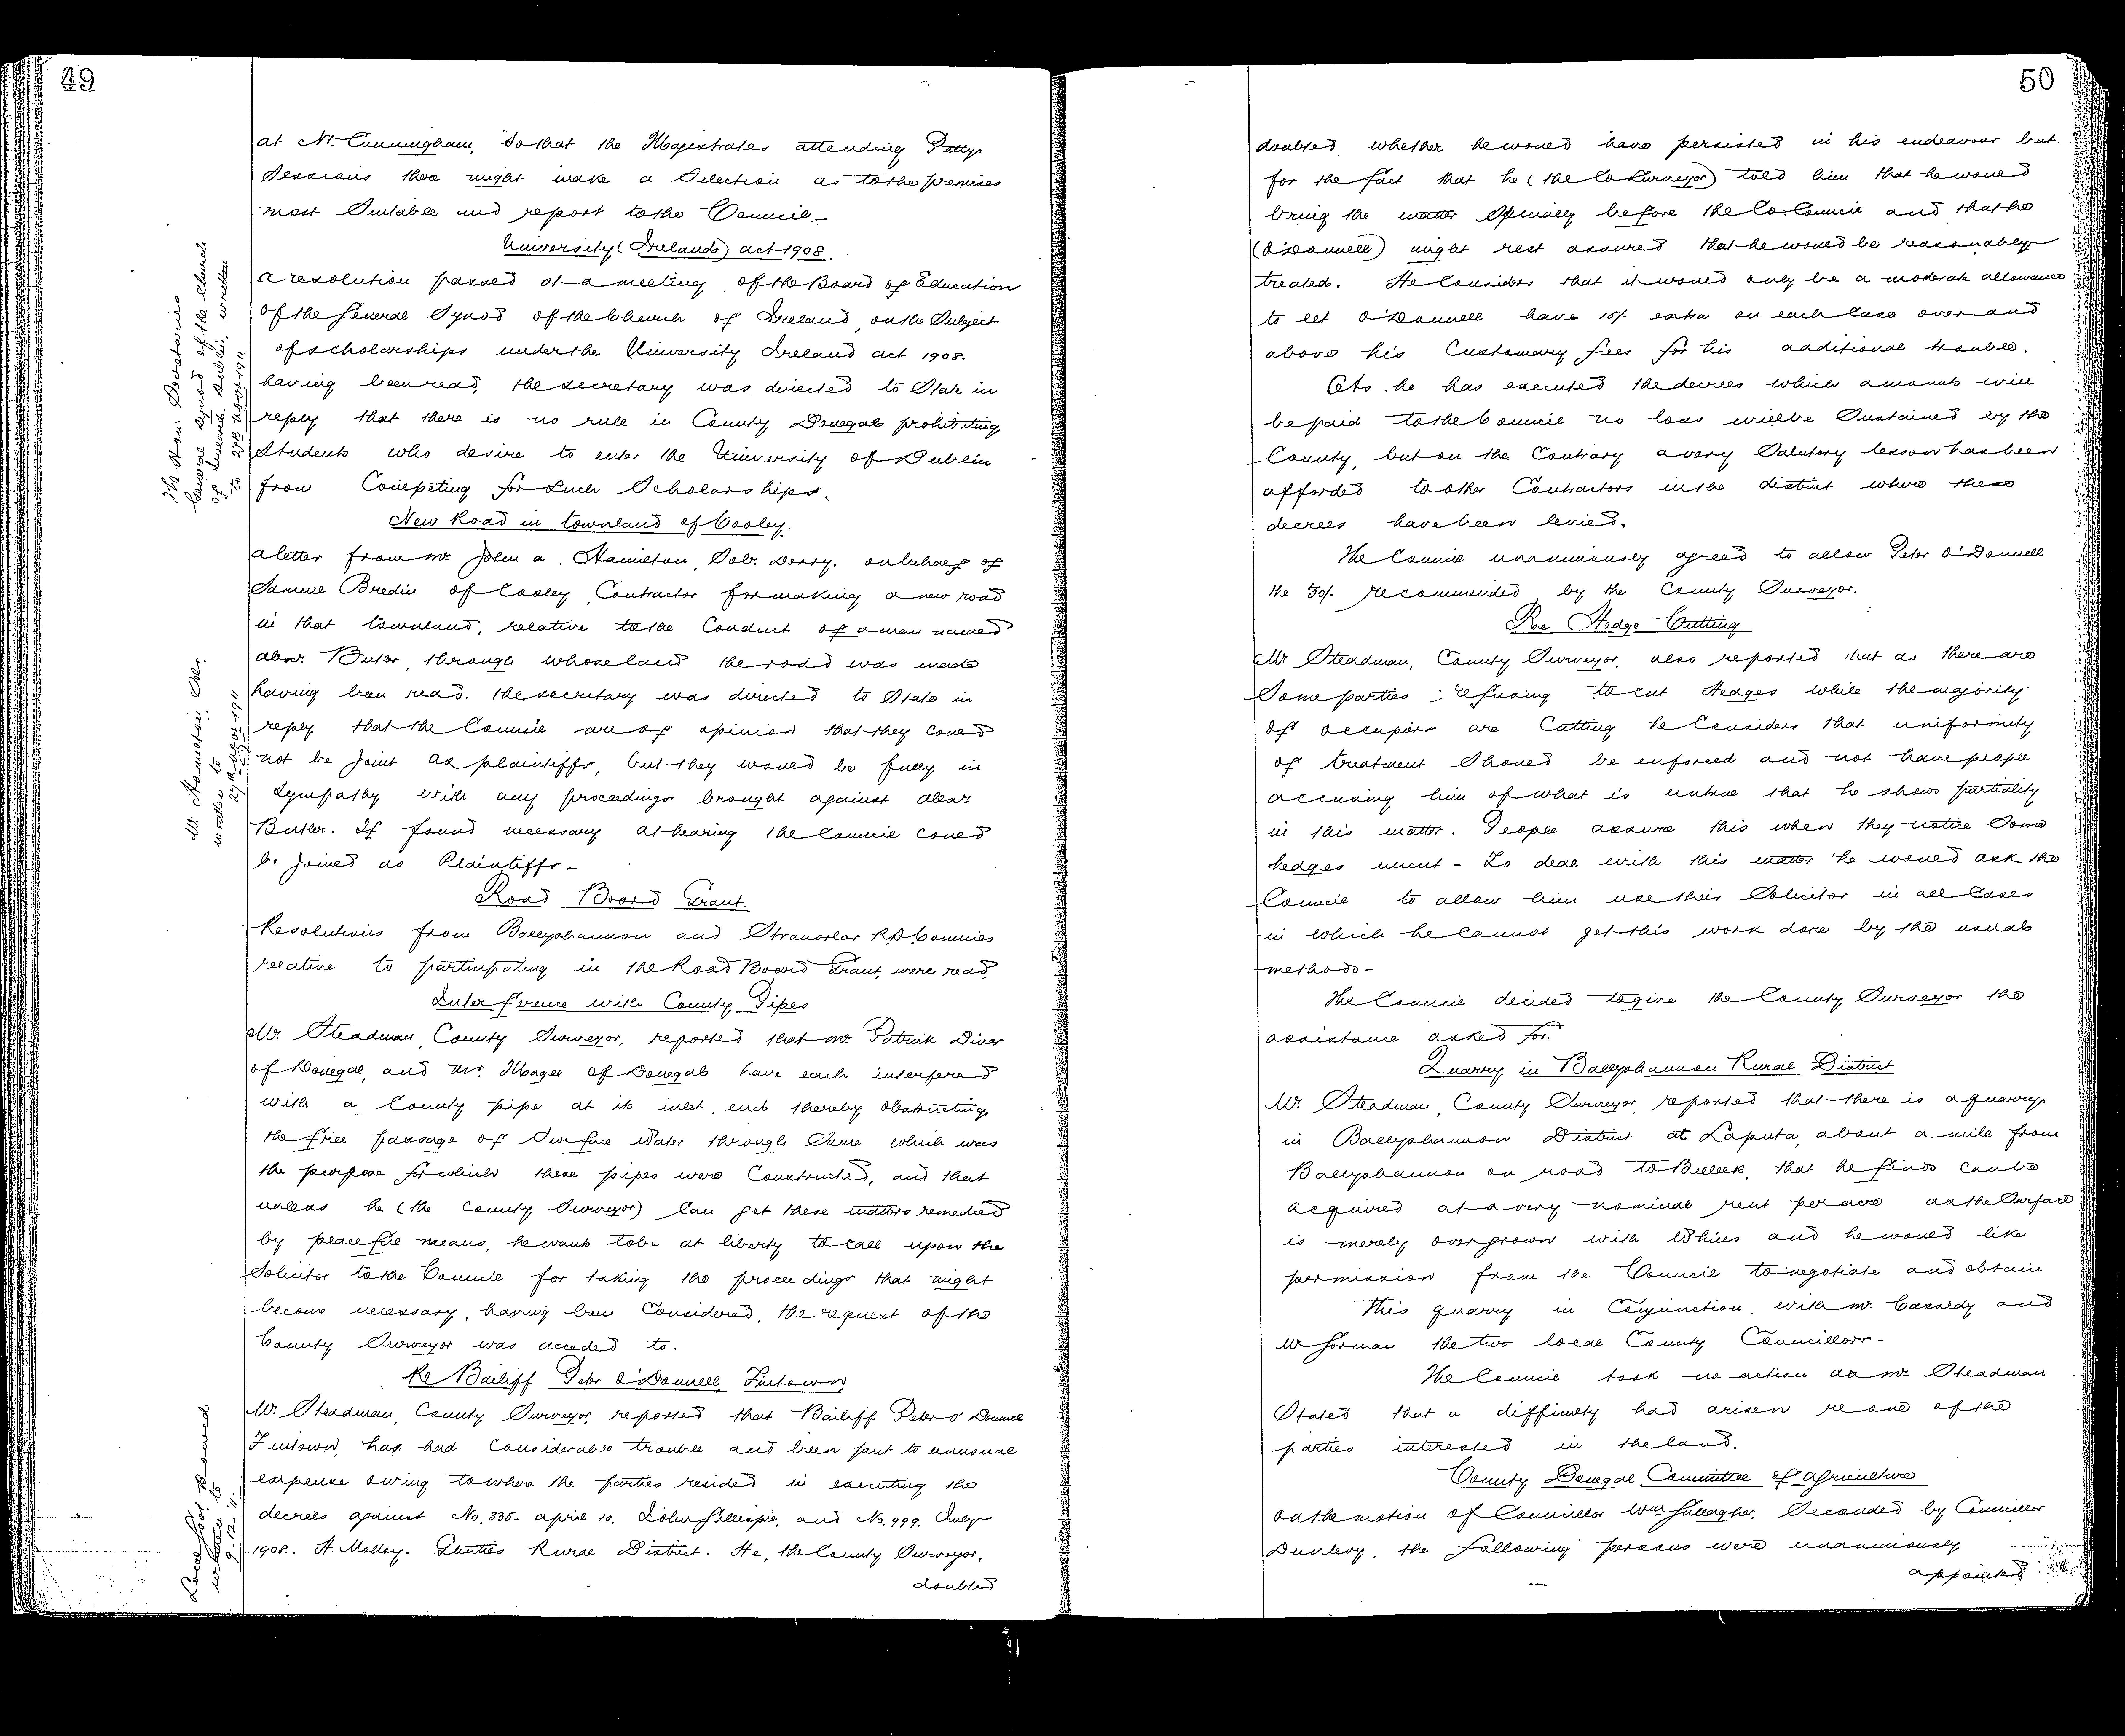 49
at Nt. Cunningham, so that the Magistrates attending Petty
Sessions there might make a Selection as to the premises
most Suitable and report to the Council -
University (Ireland) act 1908.
a resolution passed at a meeting of the Board of Education
of the General Synod of the Church of Ireland, on the Subject
of scholarships under the University Ireland act 1908.
having been read, the secretary was directed to State in
reply that there is no rule in County Donegal prohibiting
Students who desire to enter the University of Dublin
from Competing for such Scholarships.
The Hon: Secretaries
General Synod of the Church
of Ireland, Dublin, written
to 27th Novr 1911
New Road in townland of Cooley.
a letter from Mr John a. Hamilton, Solr. Derry. on behalf of
Samuel Bredin of Cooley, Contractor for making a new road
in that townland, relative to the Conduct of a man named
Alexr. Butler, through whose land the road was made
having been read. the secretary was directed to State in
reply that the Council are of opinion that they could
not be joint as plaintiffs, but they would be fully in
Sympathy with any proceedings brought against Alexr.
Butler. If found necessary at hearing the Council could
be joined as Plaintiffs -
Mr. Hamilton, Solr.
written to
27th Novr 1911
Road Board Grant.
Resolutions from Ballyshannon and Stranorlar R.D. Councils
relative to participating in the Road Board Grant, were read.
Interference with County Pipes
Mr. Steadman, County Surveyor, reported that Mr. Patrick Diver
of Donegal, and Mr. Magee of Donegal have each interfered
with a County pipe at its inlet end thereby obstructing
the free passage of Surface Water through Same which was
the purpose for which these pipes were Constructed, and that
unless he (the County Surveyor) Can get these matters remedied
by peaceful means, he wants to be at liberty to call upon the
Solicitor to the Council for taking the proceedings that might
become necessary, having been Considered, the request of the
County Surveyor was acceded to.
Re Bailiff Peter O'Donnell, Fintown
Mr. Steadman, County Surveyor, reported that Bailiff Peter O'Donnell
Fintown, has had Considerable trouble and been put to unusual
expense owing to where the parties resided in executing the
decrees against No. 335- april 10. John Gillespie, and No. 999. July
1908. H. Molloy. Glenties Rural District. He, the County Surveyor,
doubted
written to
9.12.11.
50
doubted whether he would have persisted in his endeavour but
for the fact that he (the Co Surveyor) told him that he would
bring the matter Specially before the Co. Council and that he
(O'Donnell) might rest assured that he would be reasonably
treated. He Considers that it would only be a moderate allowance
to let O'Donnell have 15/- extra on each Case over and
above his Customary fees for his additional trouble.
As he has executed the decrees which amounts will
be paid to the Council no loss will be Sustained by the
County, but on the Contrary a very Salutory lesson has been
afforded to other Contractors in the district where these
decrees have been levied.
The Council unanimously agreed to allow Peter O'Donnell
the 30/- recommended by the County Surveyor.
Re Hedge-Cutting
Mr Steadman, County Surveyor, also reported that as there are
Some parties refusing to cut Hedges while the majority
of occupiers are Cutting he Considers that uniformity
of treatment Should be enforced and not have people
accusing him of what is untrue that he shows partiality
in this matter. People assume this when they notice Some
hedges uncut - To deal with this matter he would ask the
Council to allow him use their Solicitor in all Cases
in which he Cannot get this work done by the usual
methods -
The Council decided to give the County Surveyor the
assistance asked for.
Quarry in Ballyshannon Rural District
Mr. Steadman, County Surveyor, reported that there is a quarry
in Ballyshannon District at Laputa, about a mile from
Ballyshannon on road to Belleek, that he finds can be
acquired at a very nominal rent per acre as the Surface
is merely overgrown with Whins and he would like
permission from the Council to negotiate and obtain
this quarry in Conjunction with Mr. Cassidy and
Mr Gorman the two local County Councillors -
The Council took no action as Mr. Steadman
Stated that a difficulty had arisen re one of the
parties interested in the land.
County Donegal Committee of agriculture
on the motion of Councillor Wm Gallagher, Seconded by Councillor
Dunlevy, the following persons were unanimously
appointed